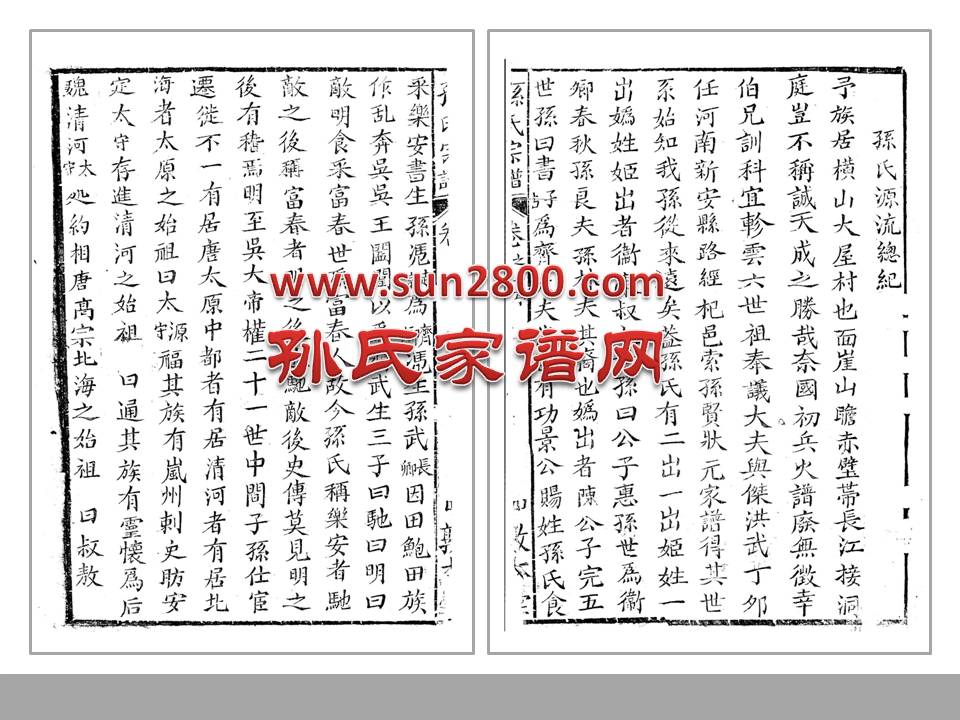 孫氏源流總紀
予族居橫山大屋村也面崖山瞻赤壁帶長江接洞
庭豈不稱誠天成之勝哉奈國初兵火譜廢無徵幸
伯兄訓科宜軫雲六世祖奉議大夫與傑洪武丁卯
任河南新安縣路經杞邑索孫賢狀元家譜得其世
系始知我孫從來遠矣葢孫氏有二出一出姬姓一
出嬀姓姬出者衞 叔 孫曰公子惠孫世為衞
卿春秋孫良夫孫林夫其裔也嬀出者陳公子完五
世孫曰書 為齊 夫 有功景公賜姓孫氏食
采樂安書生孫憑 為齊 憑生孫武長卿因田鮑田族
作乱奔吳吳王闔閭以 武生三子曰馳曰明曰
敵明食采富春世為富春人故今孫氏稱樂安者馳
敵之後稱富春者明之後 馳敵後史傳莫見明之
後有稽焉明至吳大帝權二十一世中間子孫仕宦
遷徙不一有居唐太原中都者有居清河者有居北
海者太原之始祖曰太原守福其族有嵐州刺史昉安
定太守存進清河之始祖 曰通其族有靈懷為后
魏清河太守 約相唐高宗北海之始祖 曰叔敖
孫氏宗譜
www.sun2800.com
孙氏家谱网